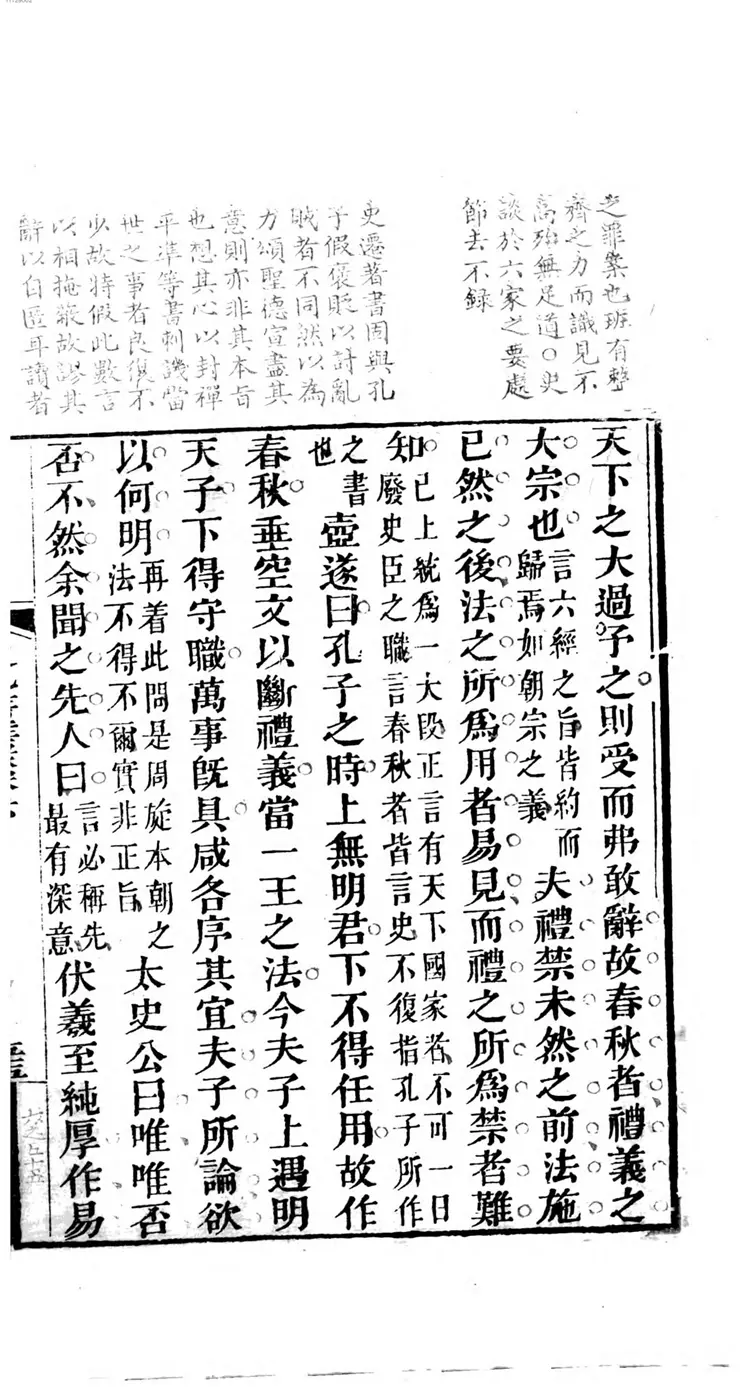 之罪案也班有整
齊之力而識見不
高殆無足道○史
談於六家之要處
節去不録
史遷著書固與孔
子假褒貶以討亂
賊者不同然以為
力頌聖德宣盡其
意則亦非其本旨
也想其心以封禪
平準等書刺譏當
世之事者良復不
少故特假此數言
以相掩蔽故謬其
辭以自匿耳讀者
天下之大過予之則受而弗敢辭故春秋者禮義之
大宗也言六經之旨皆約而歸焉如朝宗之義夫禮禁未然之前法施
已然之後法之所爲用者易見而禮之所爲禁者難
知已上統爲一大段正言有天下國家者不可一日廢史臣之職言春秋者皆言史不復指孔子所作
之書也壺遂曰孔子之時上無明君下不得任用故作
春秋垂空文以斷禮義當一王之法今夫子上遇明
天子下得守職萬事旣具咸各序其宜夫子所論欲
以何明再着此問是周旋本朝之法不得不爾實非正旨太史公曰唯唯否
否不然余聞之先人曰言必稱先最有深意伏羲至純厚作易